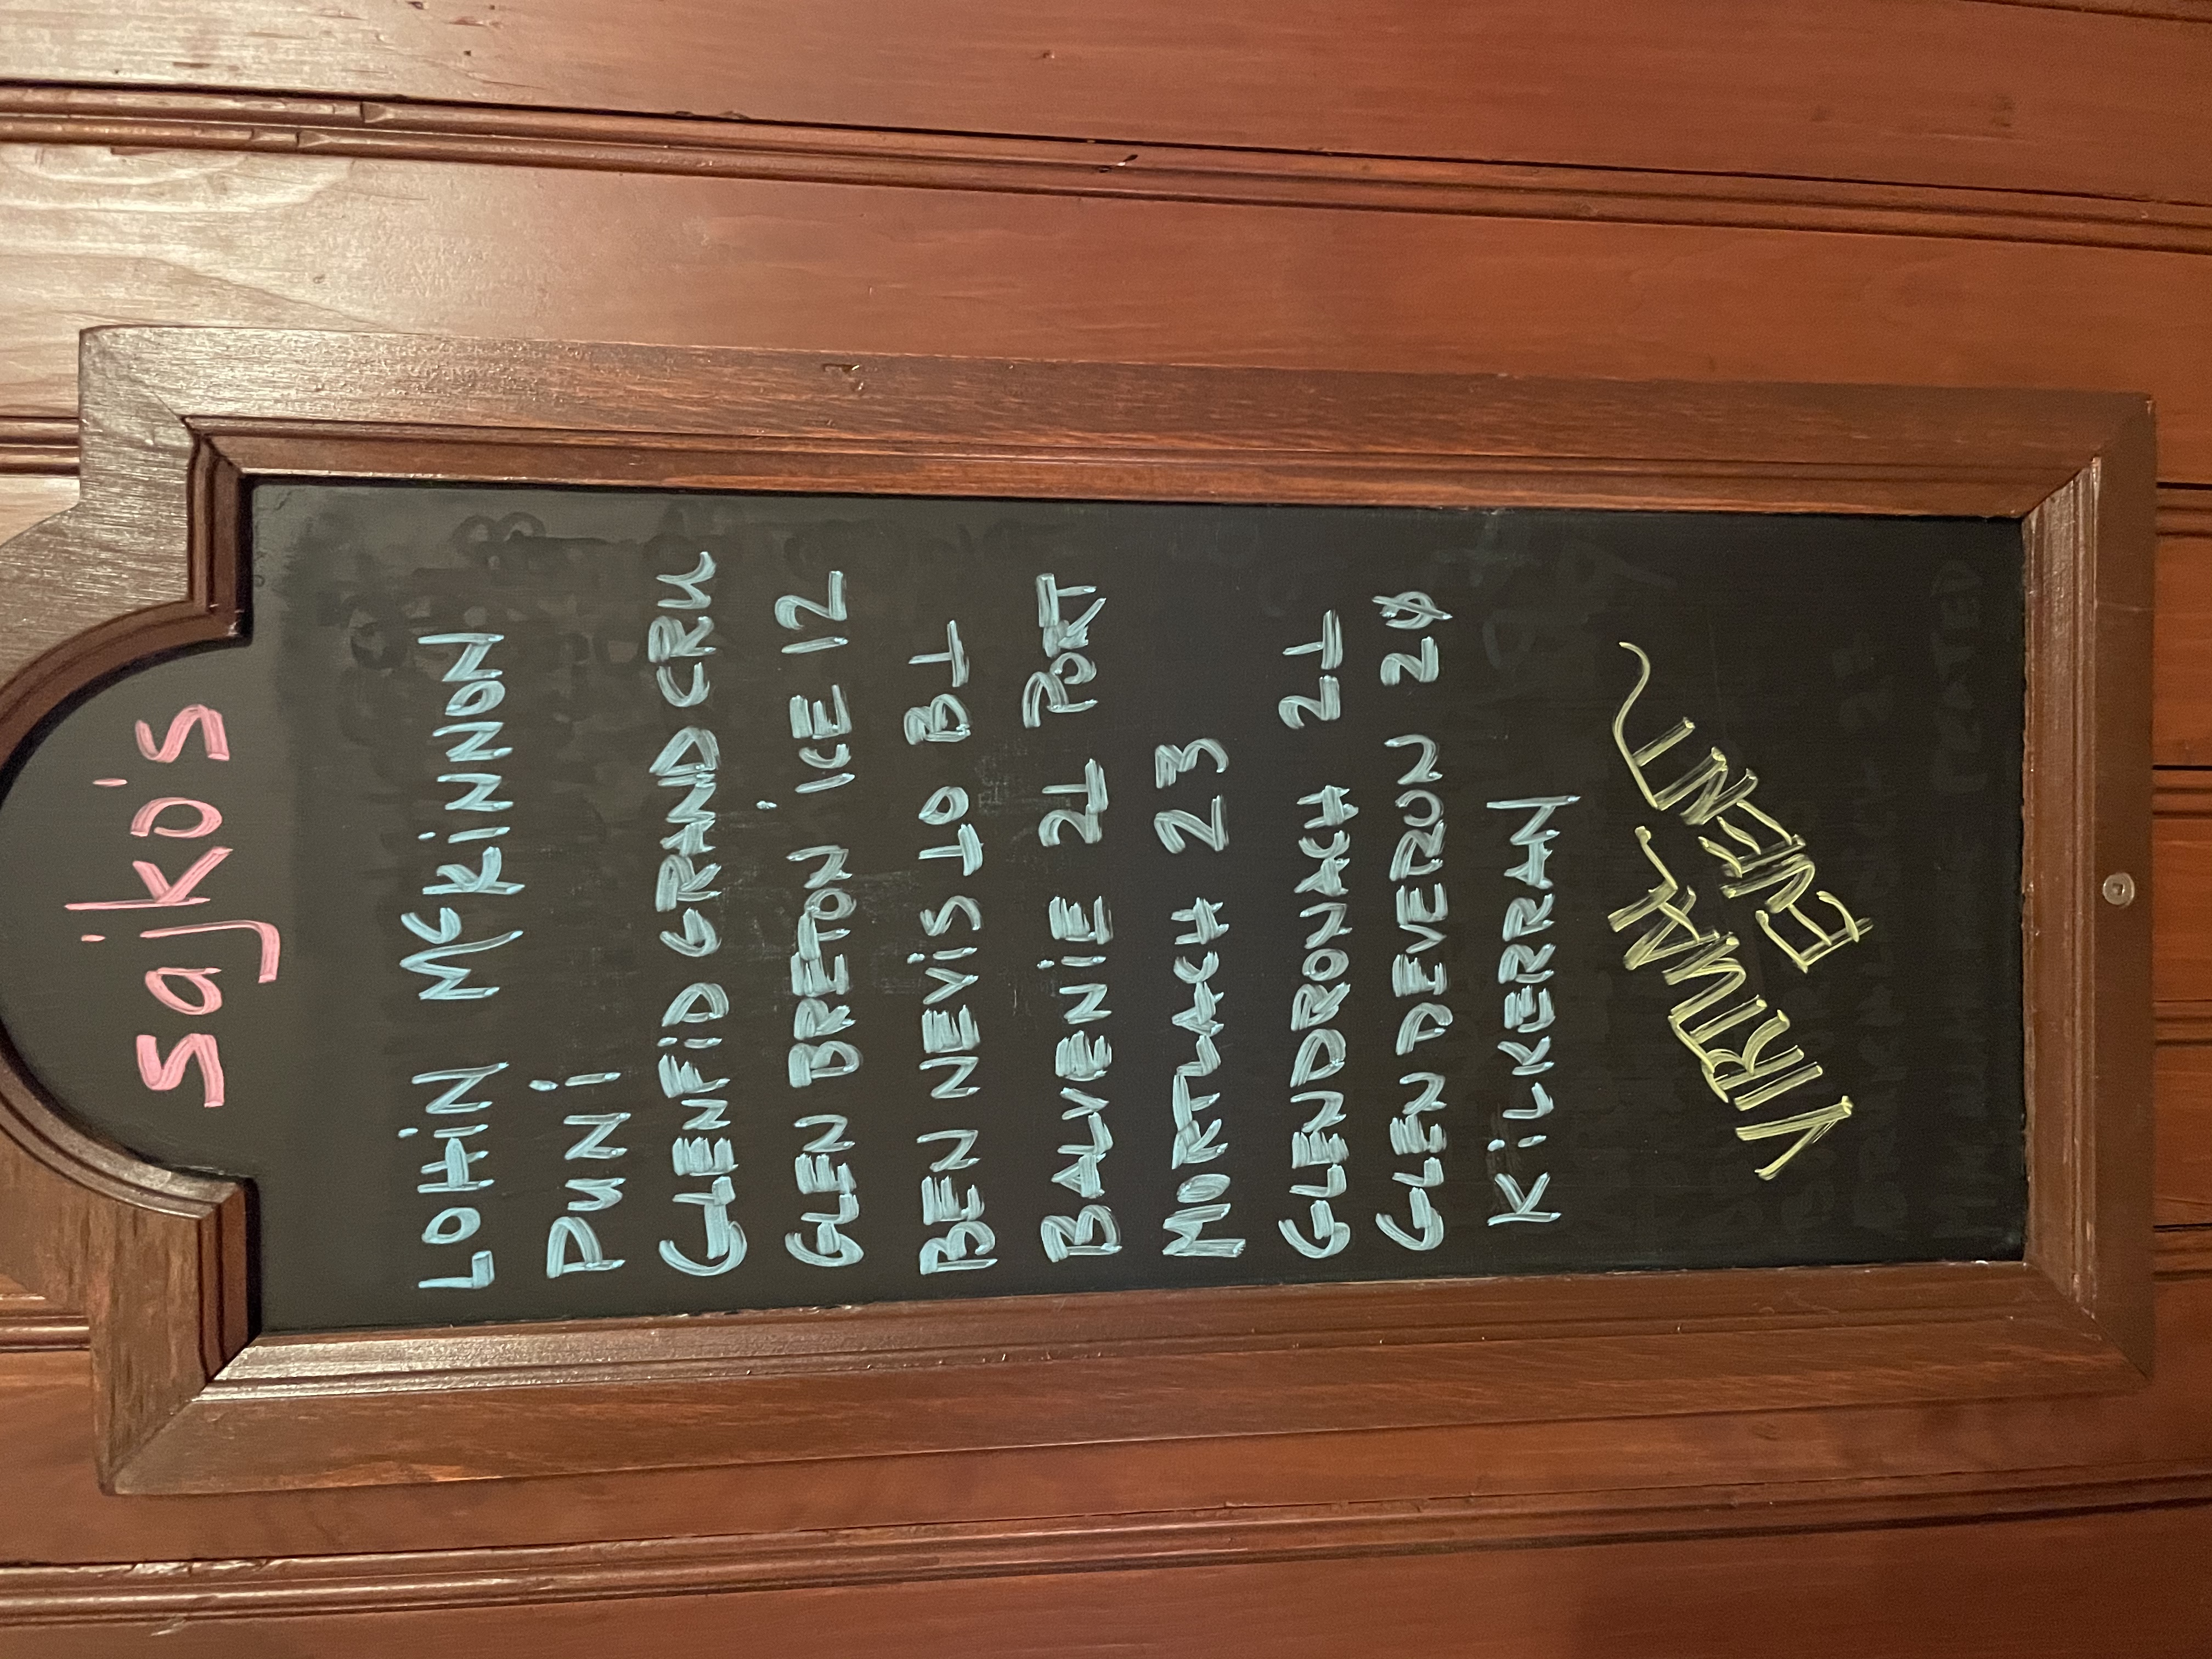 sajko's
LOHiN McKiNNON
PUNi
GLENFiD GRAND CRU
GLEN BRETON iCE 12
BEN NEViS 10 B1
BALVENiE 21 PORT
MORTLACH 23
GLENDRONACH 21
GLEN DEVERON 20
KiLKERRAN
VIRTUAL
EVENT